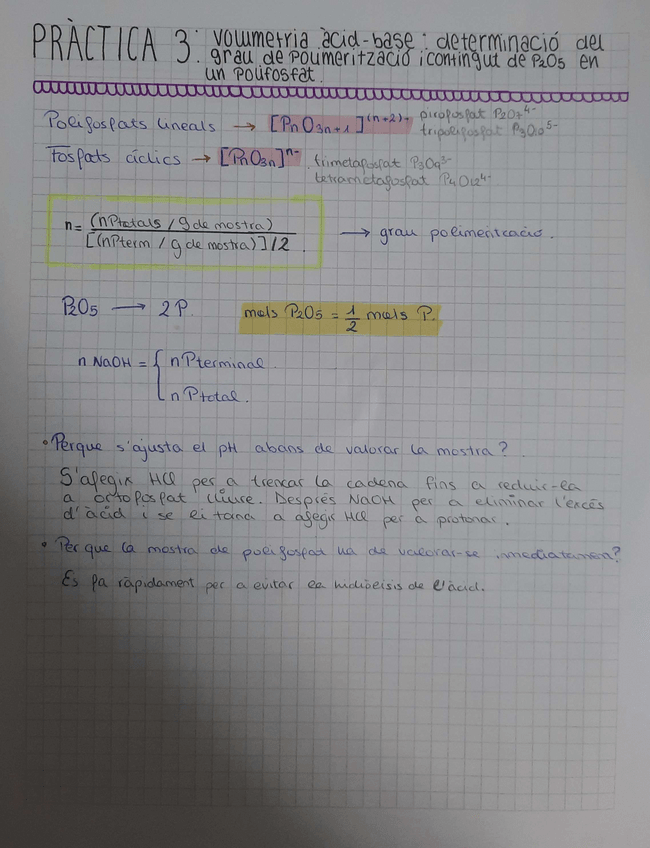 PRÀCTICA 3: volumetria àcid-base: determinació del
grau de polimerització i contingut de P2O5 en
un polifosfat.
Polifosfats lineals → [PnO3n+1](n+2)- pirofosfat P2O7 4-
tripolifosfat P3O10 5-
Fosfats cíclics → [PnO3n]n- trimetafosfat P3O9 3-
tetrametafosfat P4O12 4-
n = (nPtotals / g de mostra) / [(nPterm / g de mostra)]/2 → grau polimerització.
P2O5 → 2P. mols P2O5 = 1/2 mols P.
n NaOH = { nPterminal.
nPtotal.
• Perque s'ajusta el pH abans de valorar la mostra?
S'afegix HCl per a trencar la cadena fins a reduir-la
a ortofosfat lliure. Després NaOH per a eliminar l'excés
d'àcid i se li torna a afegir HCl per a protonar.
• Per que la mostra de polifosfat ha de valorar-se
Es fa ràpidament per a evitar la hidròlisis de l'àcid.